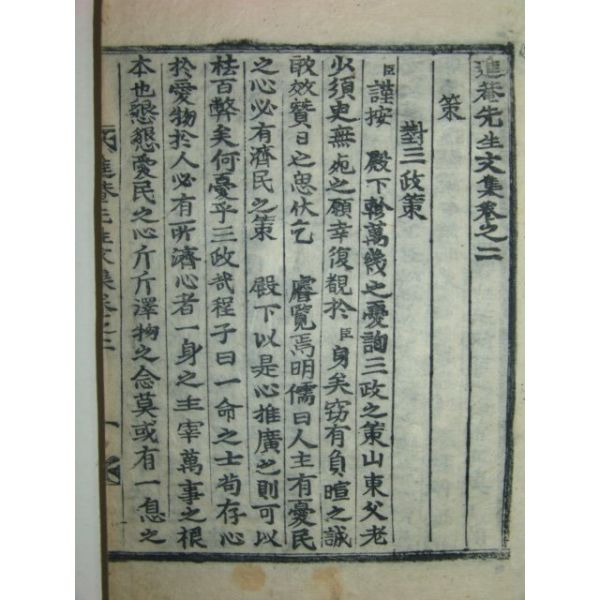 進菴先生文集卷之二
策
對三政策
臣謹按 殿下軫萬幾之憂詢三政之策山東父老
少須史無死之願幸復覩於臣身矣窃有負暄之誠
敢效贊日之忠伏乞 睿覧焉明儒曰人主有憂民
之心必有濟民之策 殿下以是心推廣之則可以
祛百弊矣何憂乎三政㢤程子曰一命之士苟存心
於愛物於人必有所濟心者一身之主宰萬事之根
本也懇懇愛民之心斤斤澤物之念莫或有一息之
進菴先生文集卷之二 一